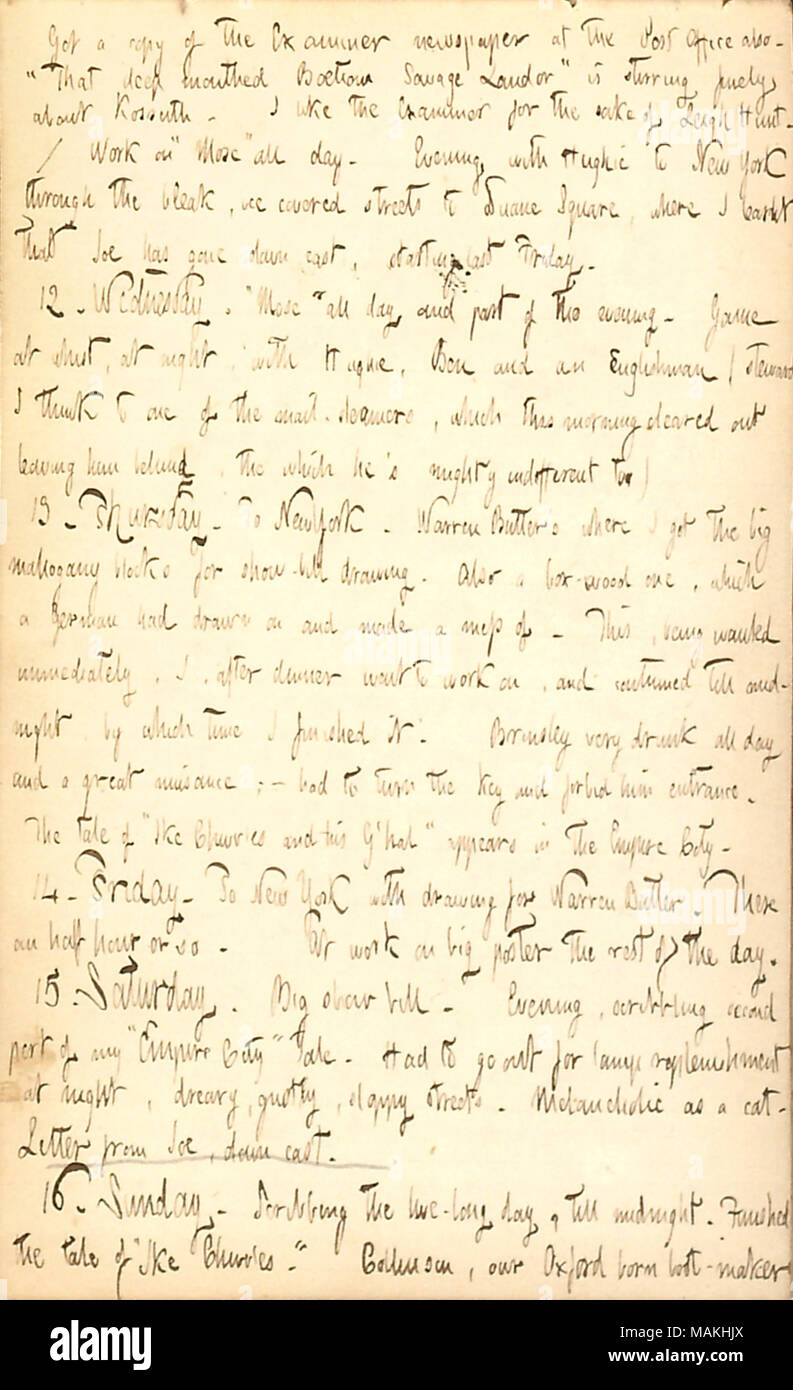 Got a copy of the Examiner newspaper at the Post Office also-
"That deep mouthed Boetian Savage Landor" is stirring finely
about Kossuth. I like the Examiner for the sake of Leigh Hunt.
/ Work on "Mose" all day. Evening, with Hughie to New York
through the bleak, ice covered streets to Duane Square, where I learnt
that Joe has gone down east, starting last Friday.
12. Wednesday. "Mose" all day and part of the evening. Game
at whist, at night, with Hughie, Ben and an Englishman (steward
I think to one of the mail-steamers, which this morning cleared out
leaving him behind, the which he's mighty indifferent to)
13. Thursday. To New York. Warren Butler's where I got the big
mahogany blocks for show-bill drawing. Also a box-wood one, which
a German had drawn on and made a mess of. This, being wanted
immediately, I, after dinner went to work on, and continued till mid-
night, by which time I finished it. Brinsley very drunk all day
and a great nuisance; - had to turn the key and forbid him entrance.
The tale of "Ike Chivvles and his G'hal" appears in the Empire City.
14. Friday. To New York with drawing for Warren Butler. There
an half hour or so. At work on big poster the rest of the day.
15. Saturday. Big show bill. Evening, scribbling second
part of my "Empire City" Tale. Had to go out for lamp replenishment
at night, dreary, gusty, sloppy streets. Melancholic as a cat.
Letter from Joe, down east.
16. Sunday. Scribbling the live-long day, till midnight. Finished
the tale of "Ike Chivvles." Collinson, our Oxford born boot-maker
alamy
Image ID: MAKHJX
www.alamy.com